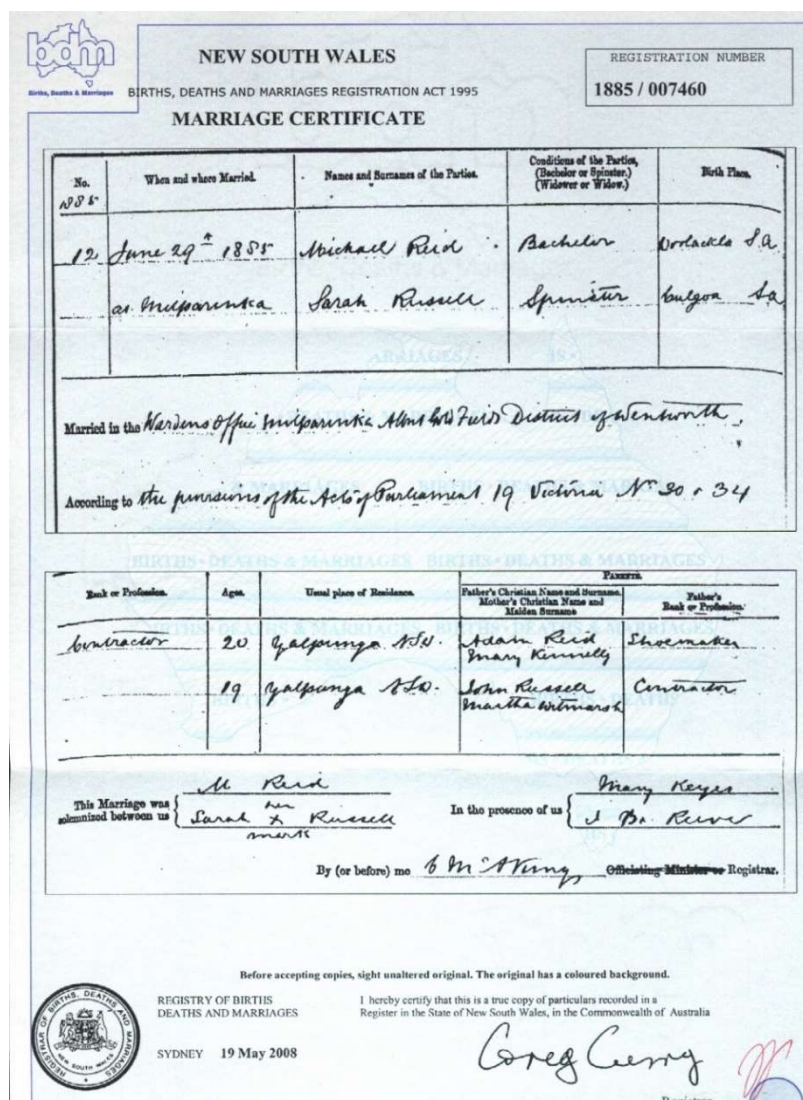 bdm
Births, Deaths & Marriages
NEW SOUTH WALES
BIRTHS, DEATHS AND MARRIAGES REGISTRATION ACT 1995
MARRIAGE CERTIFICATE
REGISTRATION NUMBER
1885 / 007460
No. When and where Married. Names and Surnames of the Parties. Conditions of the Parties, (Bachelor or Spinster.) (Widower or Widow.) Birth Place.
1885
12 June 29th 1885 Michael Reid Bachelor S.A
at Milparinka Sarah Russell Spinster Culgoa Sa
Married in the Wardens Office Milparinka Albert Gold Fields District of Wentworth.
According to the provisions of the Acts of Parliament 19 Victoria No 30 & 34
PARENTS.
Rank or Profession. Ages. Usual place of Residence. Father's Christian Name and Surname. Mother's Christian Name and Maiden Surname. Father's Rank or Profession.
Contractor 20 Yalpunga NSW. Adam Reid Shoemaker
Mary Kinnelly
19 Yalpunga NSW. John Russell Contractor
Martha Witmarsh
This Marriage was solemnized between us
M Reid
Sarah her x mark Russell
In the presence of us
Mary Keyes
By (or before) me Officiating Minister or Registrar.
Before accepting copies, sight unaltered original. The original has a coloured background.
REGISTRY OF BIRTHS
DEATHS AND MARRIAGES
I hereby certify that this is a true copy of particulars recorded in a
Register in the State of New South Wales, in the Commonwealth of Australia
SYDNEY 19 May 2008
REGISTRAR OF BIRTHS, DEATHS AND MARRIAGES
NEW SOUTH WALES
Greg Curry
Registrar